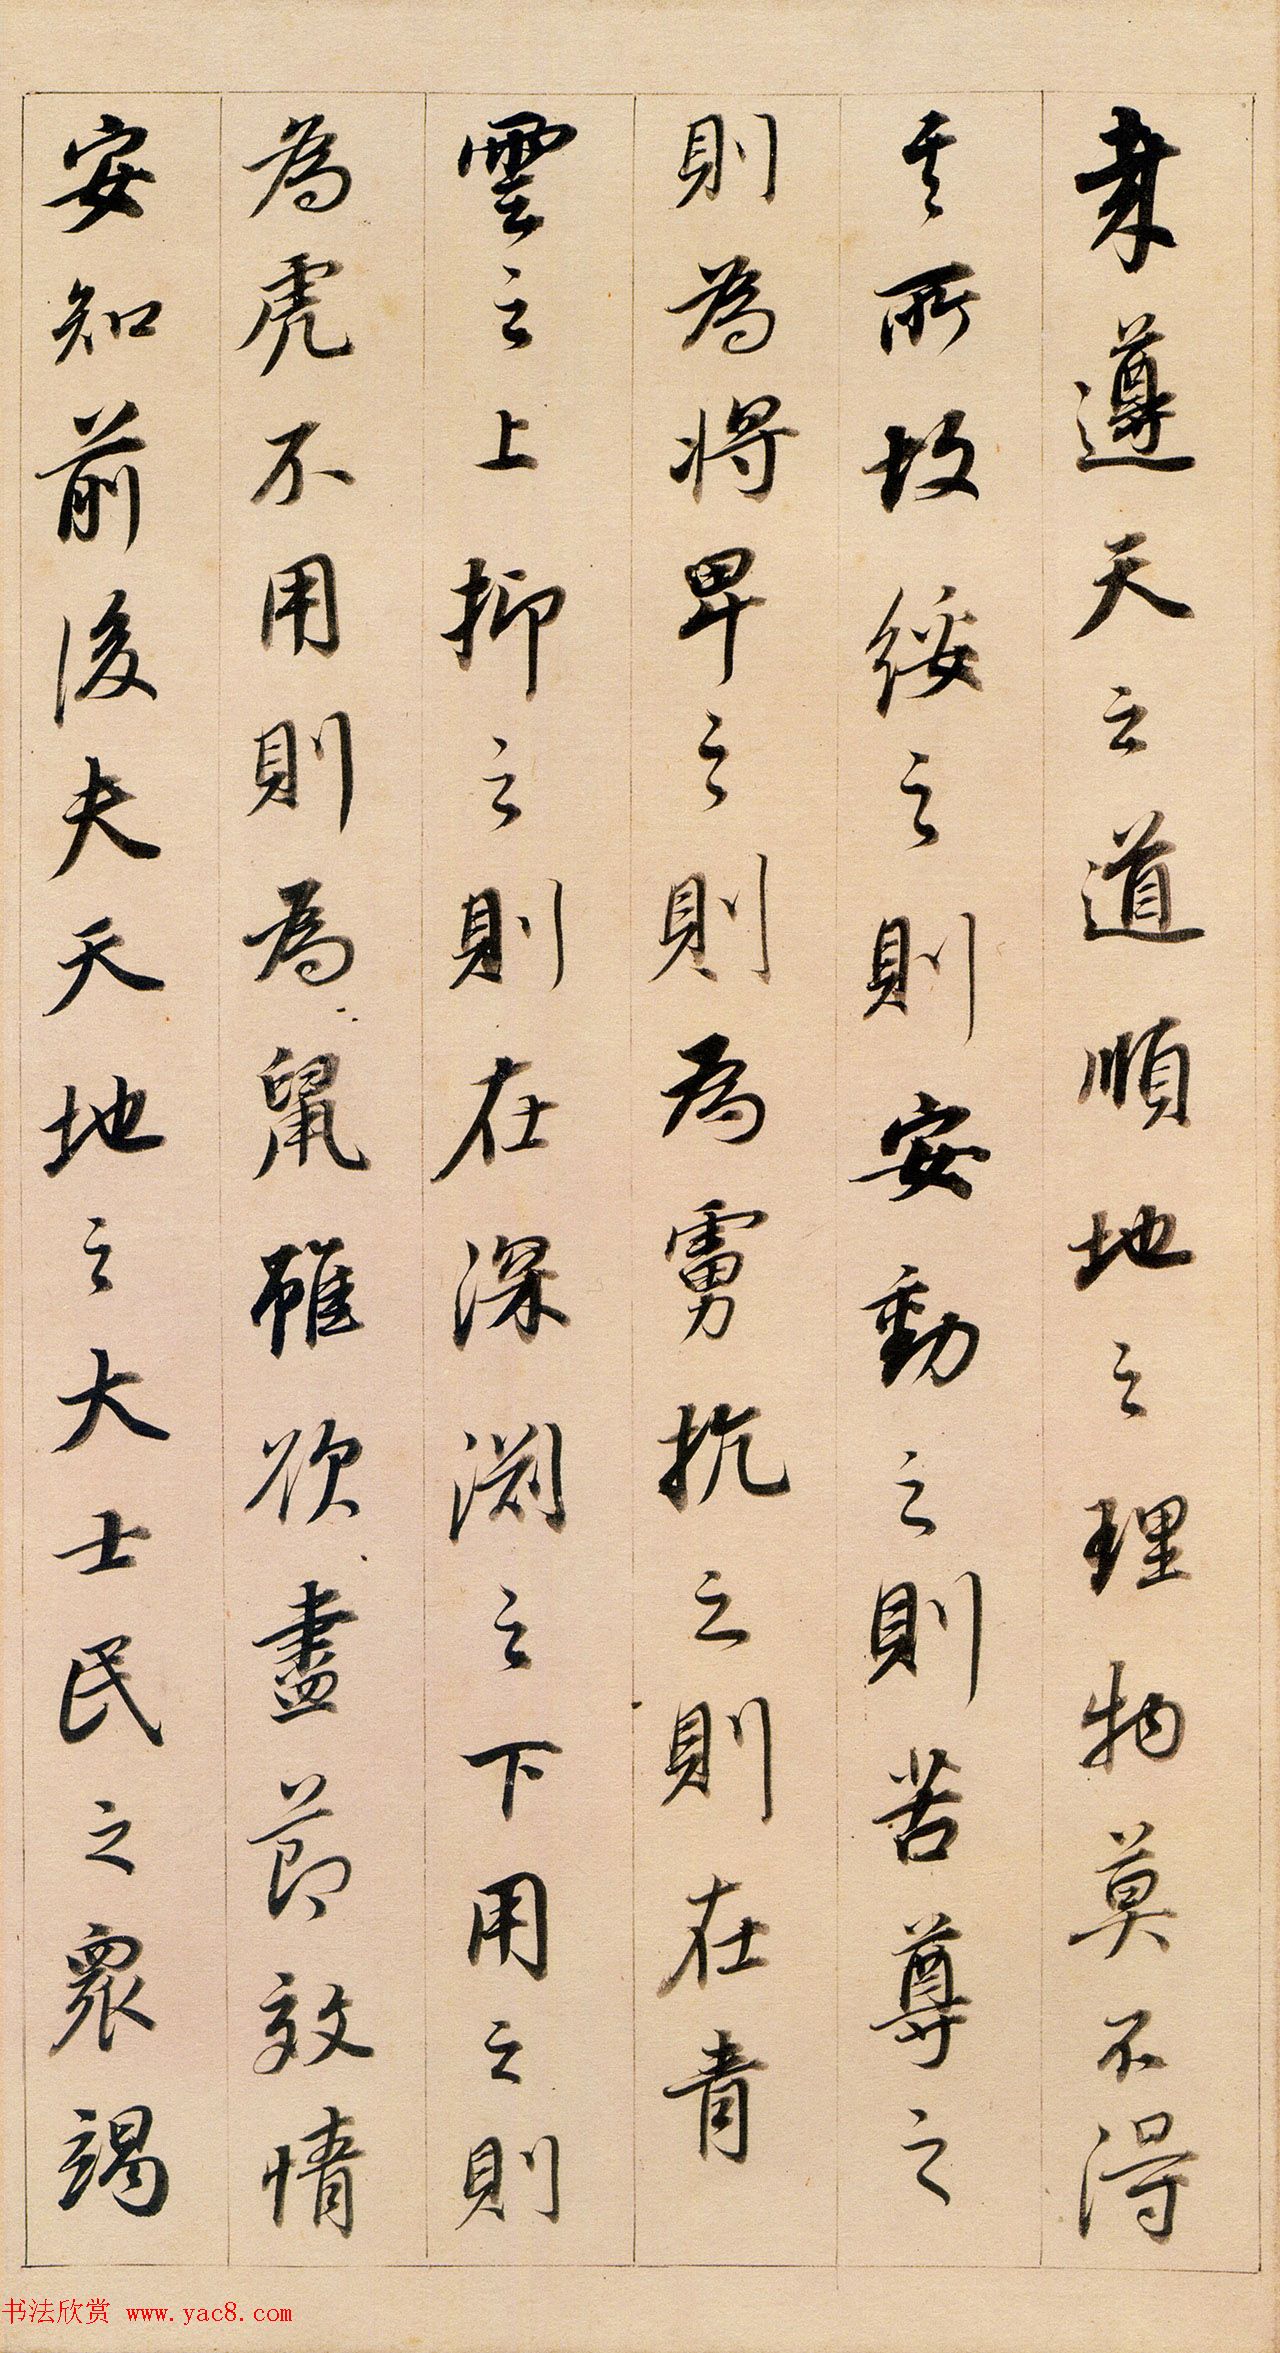 聿遵天之道順地之理物莫不得
其所故綏之則安動之則苦尊之
則為將卑之則為虜抗之則在青
雲之上抑之則在深淵之下用之則
為虎不用則為鼠雖欲盡節效情
安知前後夫天地之大士民之眾竭
书法欣赏 www.yac8.com